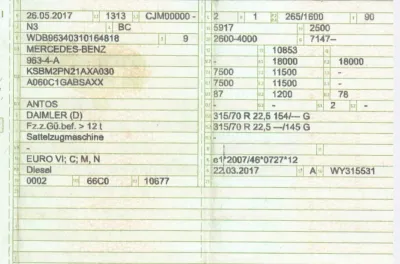 26.05.2017 1313 CJM00000 -
N3 BC
WDB96340310164818 9
MERCEDES-BENZ
963-4-A
KSBM2PN21AXA030
A060C1GABSAXX
ANTOS
DAIMLER (D)
Fz.z.Gü.bef. > 12 t
Sattelzugmaschine
-
EURO VI; C; M, N
Diesel
0002 66C0 10677
2 1 265/1600 90
5917 2500
2600-4000 7147--
- 10853 -
- 18000 18000
7500 11500 -
7500 11500 -
87 1200 78
- - 2 -
315/70 R 22,5 154/--- G
315/70 R 22,5 ---/145 G
-
-
e1*2007/46*0727*12
22.03.2017 A WY315531